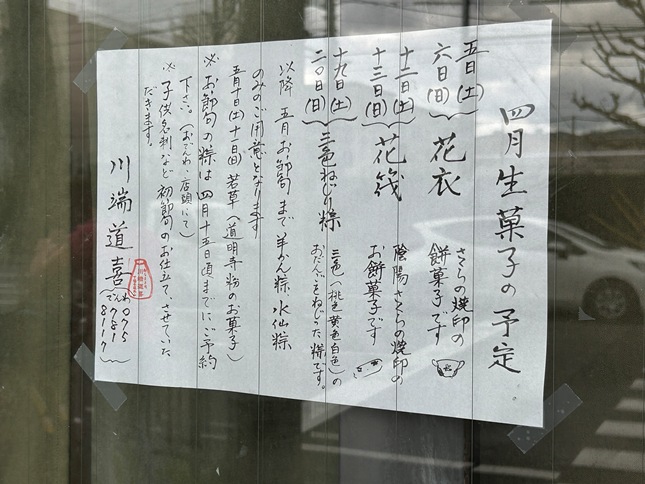 四月生菓子の予定
五日(土)
六日(日)
花衣
さくらの焼印の
餅菓子です
十二日(土)
十三日(日)
花筏
陰陽さくらの焼印の
お餅菓子です
十九日(土)
二〇日(日)
三色ねじり粽
三色(桃色黄色白色)の
おだんごをねじった粽です。
以降 五月お節句まで 羊かん粽 水仙粽
のみのご用意となります
五月十日(土)十一日(日) 若草(道明寺粉のお菓子)
※お節句の粽は四月十五日頃までにご予約
下さい。(おでんわ、店頭にて)
※子供名刺など初節句のお仕立て、させていた
だきます。
川端道喜
でんわ
075
781
8117